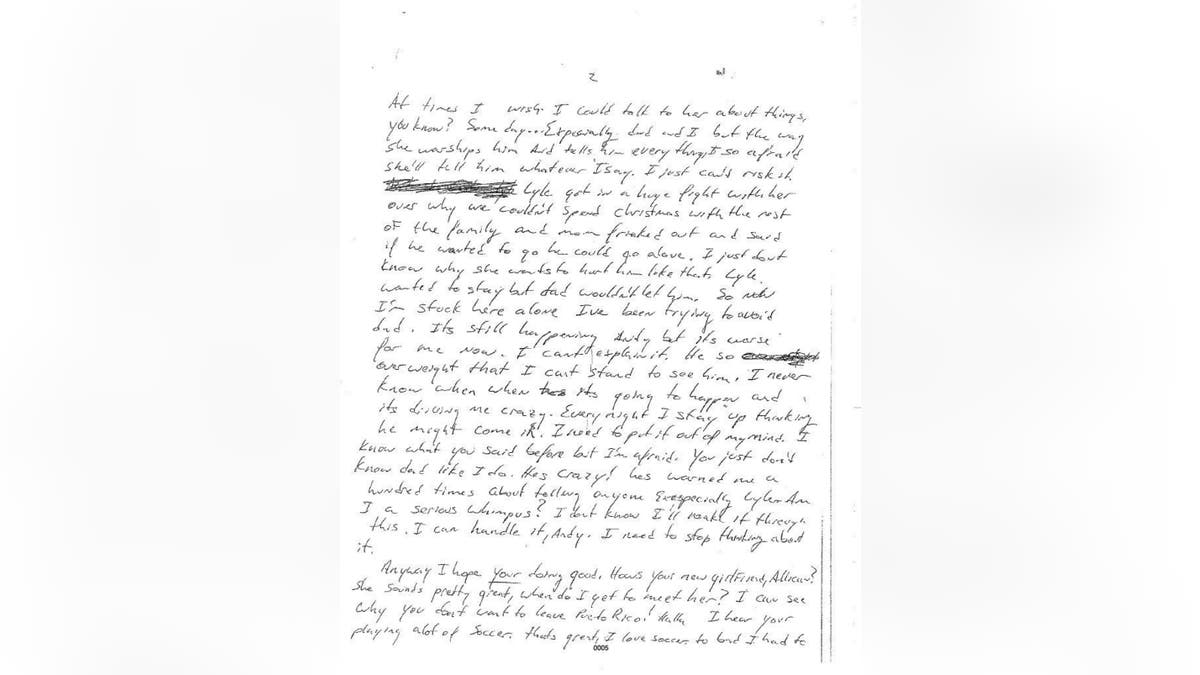 2
At times I wish I could talk to her about things,
you know? Some day... Expecially dad and I but the way
she warships him and tells him everything, I so afraid
she'll tell him whatever I say. I just can't risk it
Lyle got in a huge fight with her
over why we couldn't spend Christmas with the rest
of the family and mom friaked out and said
if he wanted to go he could go alone. I just dont
know why she wants to hurt him like that. Lyle
wanted to stay but dad wouldn't let him. So now
I'm stuck here alone I've been trying to avoid
dad. Its still happening Andy but its worse
for me now. I can't explain it. He so
overweight that I cant stand to see him. I never
know when when its going to happen and
its driving me crazy. Every night I stay up thinking
he might come in. I need to put it out of my mind. I
know what you said before but I'm afraid. You just don't
know dad like I do. Hes crazy! hes warned me a
hundred times about telling anyone Exespecially Lyle. Am
I a serious whimpus? I dont know I'll make it through
this. I can handle it, Andy. I need to stop thinking about
it.
Anyway I hope your doing good. Hows your new girlfriend,
She sounds pretty great, when do I get to meet her? I can see
why you dont want to leave Puerto Rico! Haha I hear your
playing alot of soccer. thats great, I love soccer to but I had to
0005